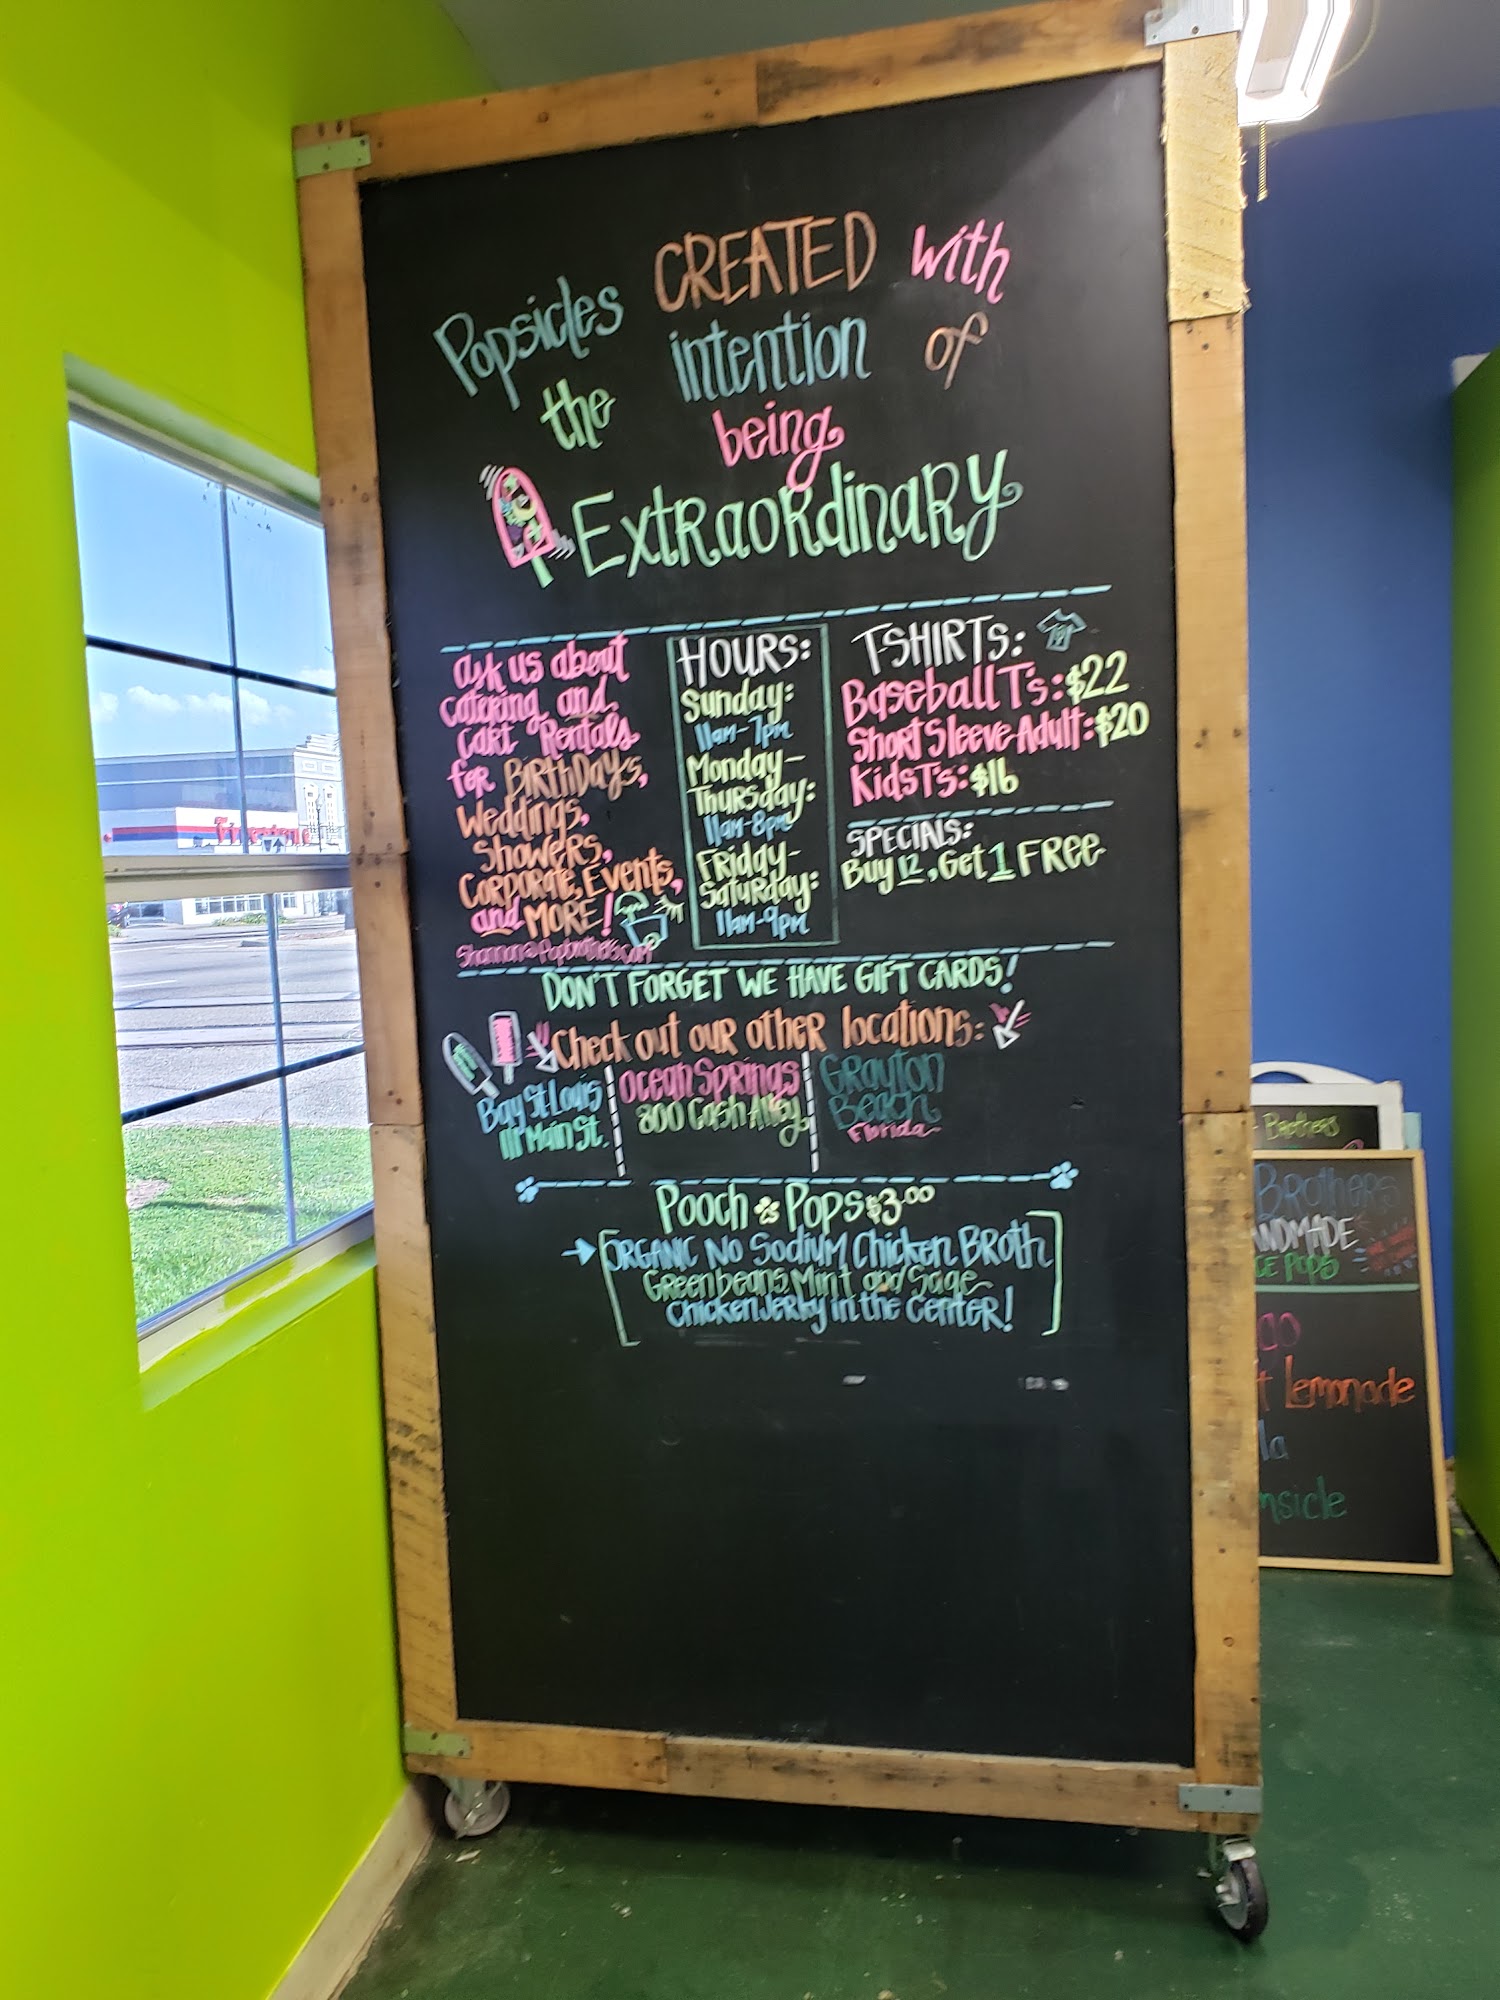 Popsicles CREATED with
the intention of
being
ExtRaoRdinaRy
Ask us about
catering and
Cart Rentals
for BirthDays,
Weddings,
Showers,
Corporate, Events,
and MORE!
Shannon@Popbrothers.com
HOURS:
Sunday:
11am-7pm
Monday-
Thursday:
11am-8pm
Friday-
Saturday:
11am-9pm
T-SHIRTS:
Baseball T's: $22
Short Sleeve Adult: $20
Kids T's: $16
SPECIALS:
Buy 12, Get 1 FREE
DON'T FORGET WE HAVE GIFT CARDS!
Check out our other locations:
Bay St. Louis
111 Main St.
Ocean Springs
800 Cash Alley
Grayton
Beach
Florida
Pooch Pops $3.00
ORGANIC No Sodium Chicken Broth
Green beans, Mint and Sage
Chicken Jerky in the Center!
Firestone
Brothers
Brothers
NDMADE
CE POPS
t lemonade
la
msicle